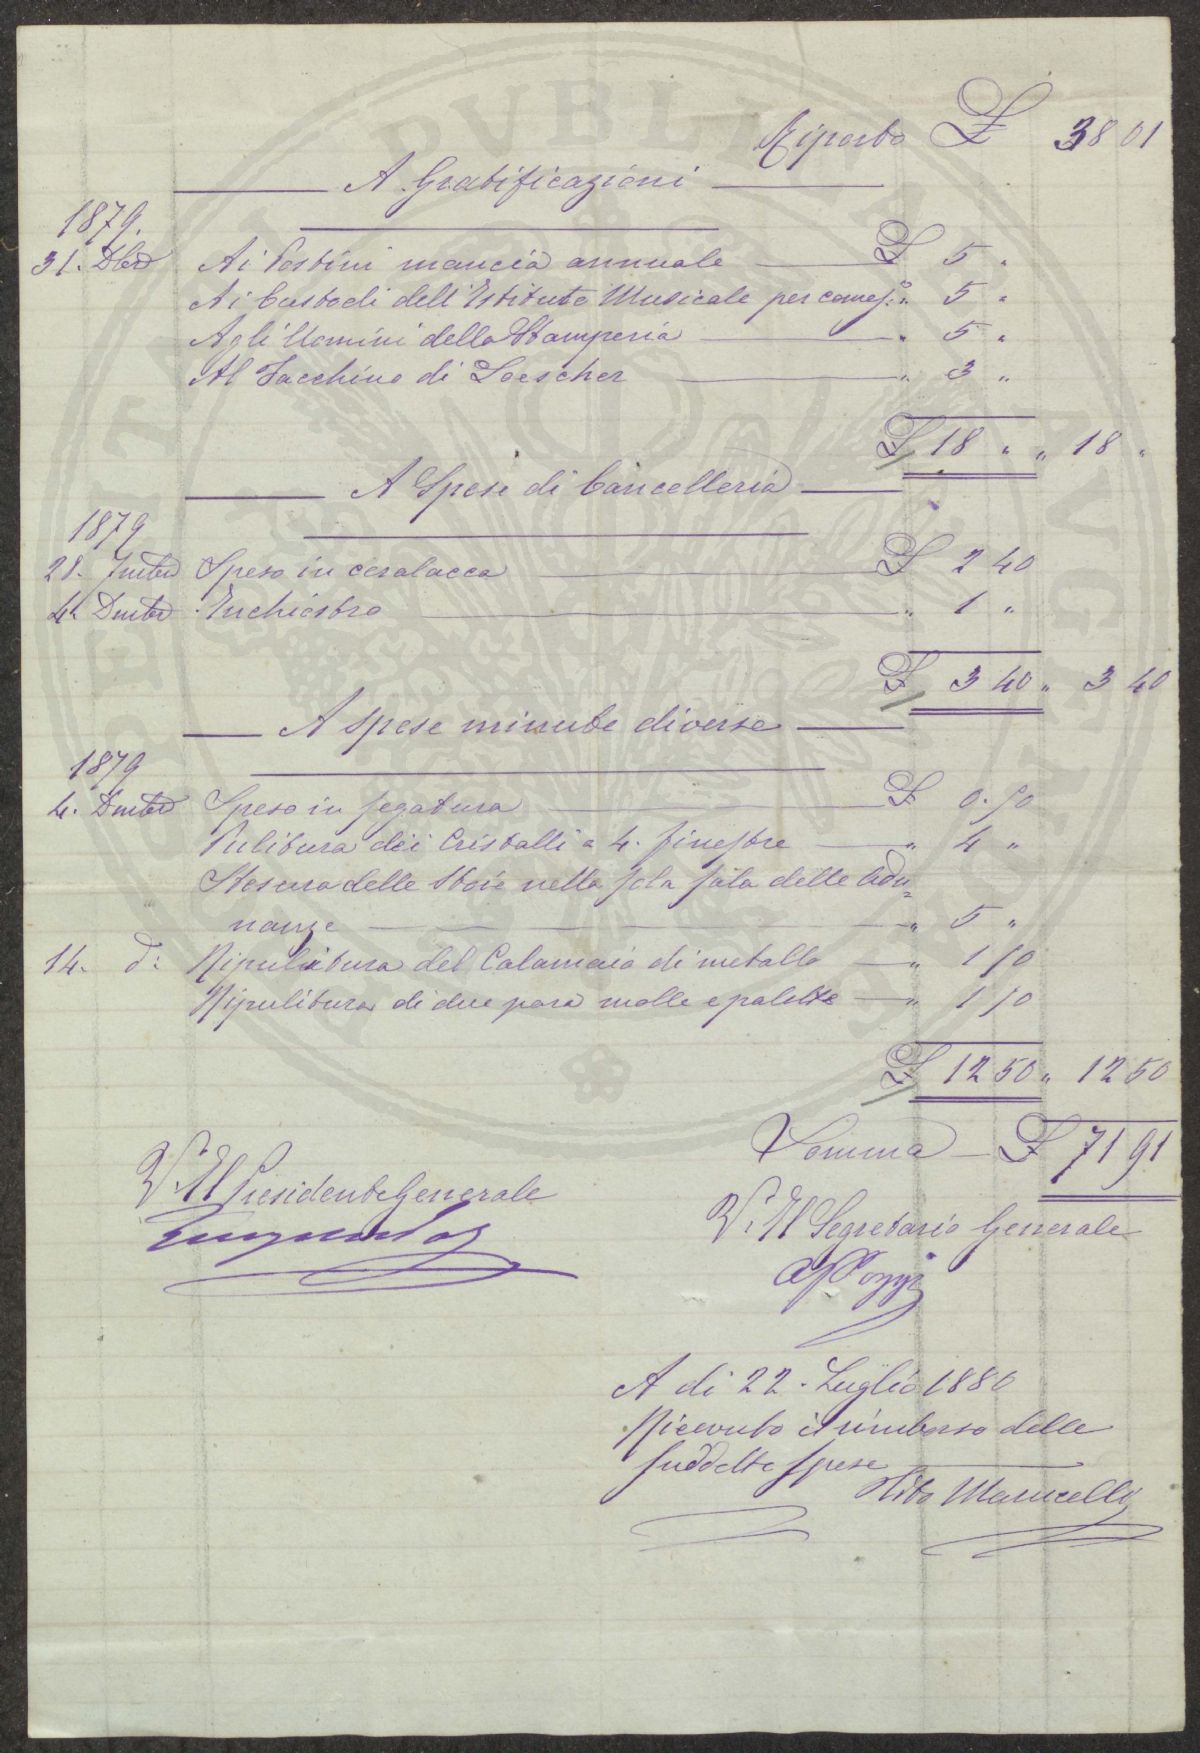 Riporto £ 38 01
A Gratificazioni
1879.
31. Dbre Ai Postini mancia annuale £ 5 "
Ai Custodi dell'Istituto Musicale per comes: " 5 "
Agli Uomini della Stamperia " 5 "
Al Facchino di Loescher " 3 "
£ 18 " " 18 "
A Spese di Cancelleria
1879
28. Spese in ceralacca £ 2 40
4. Dmbre Inchiostro " 1 "
£ 3 40 " 3 40
A Spese minute diverse
1879
4. Dmbre Spese in segatura £ 0.50
Pulitura dei Cristalli a 4. finestre " 4 "
Stesura delle Stoie nella sola sala delle Adu=
nanze " 5 "
14. do: Ripulitura del Calamaio di metallo " 1 50
Ripulitura di due para molle e palette " 1 50
£ 12 50 " 12 50
Somma £ 71 91
V. Il Presidente Generale
V. Il Segretario Generale
A di 22. Luglio 1880
Ricevuto il rimborso delle
suddette spese
Tito Marucelli